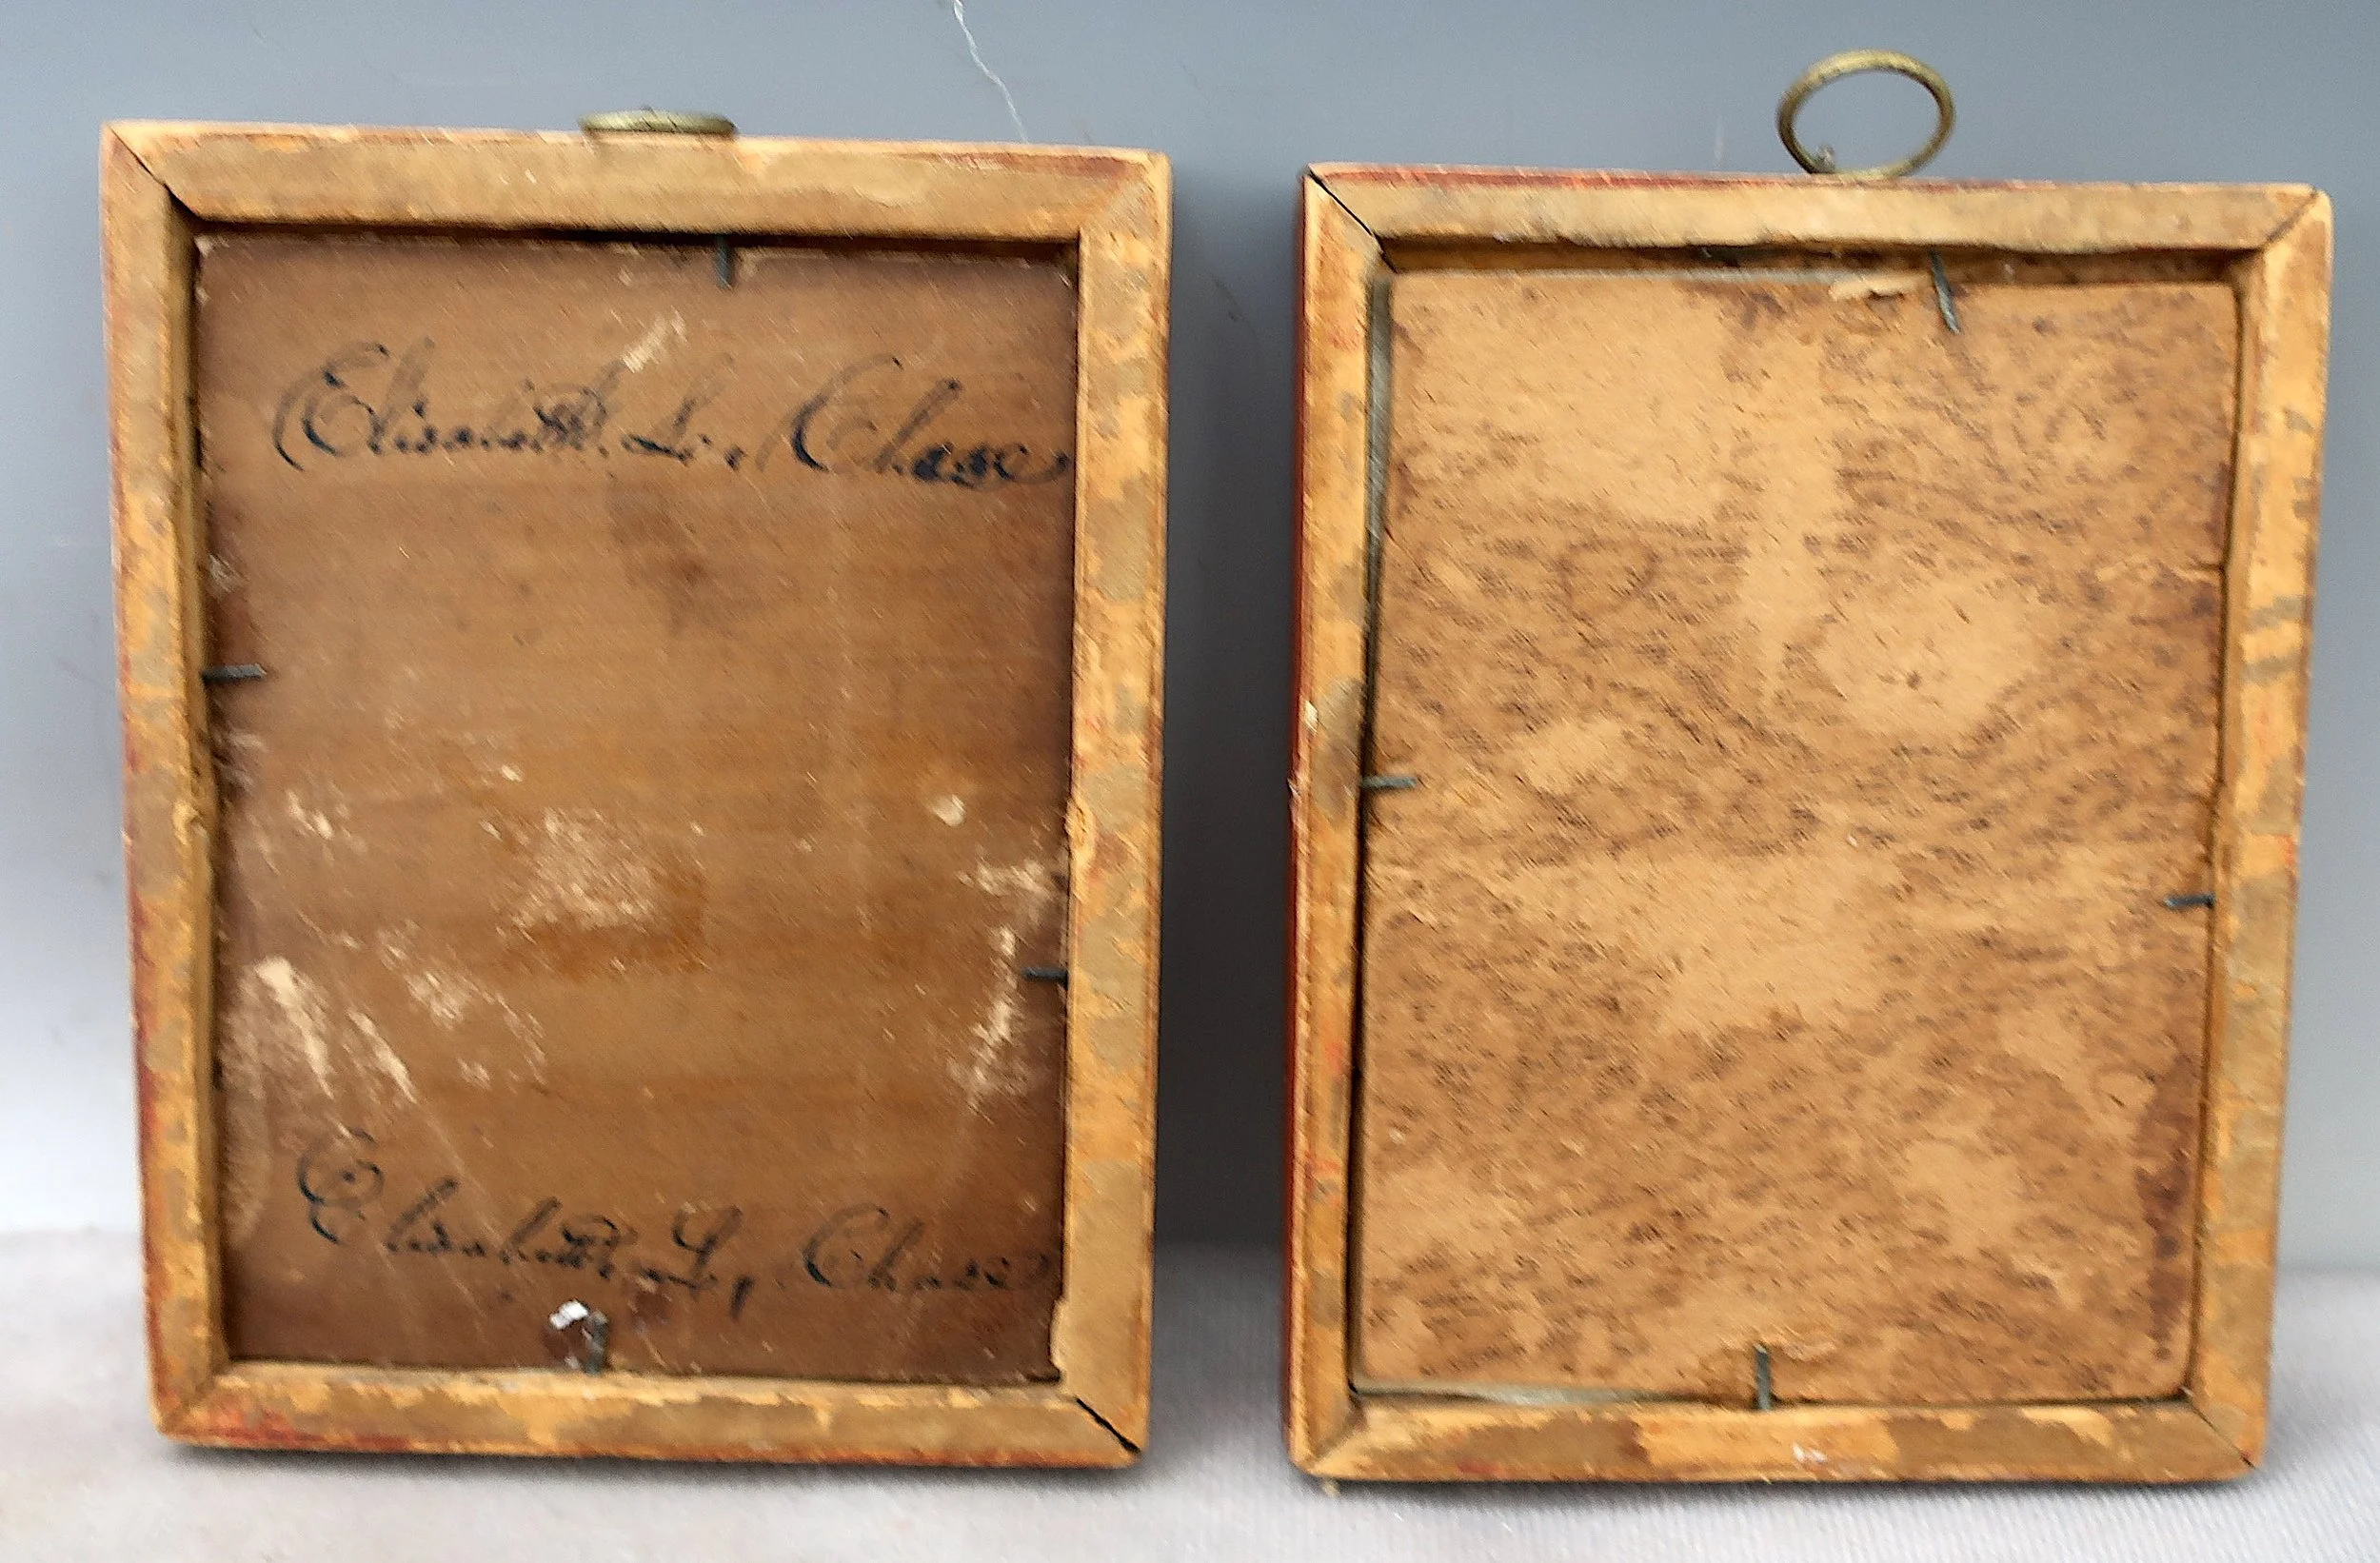 Elisabeth L. Chase
Elisabeth L. Chase